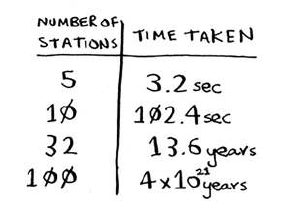 NUMBER OF STATIONS | TIME TAKEN
5 | 3.2 sec
10 | 102.4 sec
32 | 13.6 years
100 | 4 x 10²¹ years